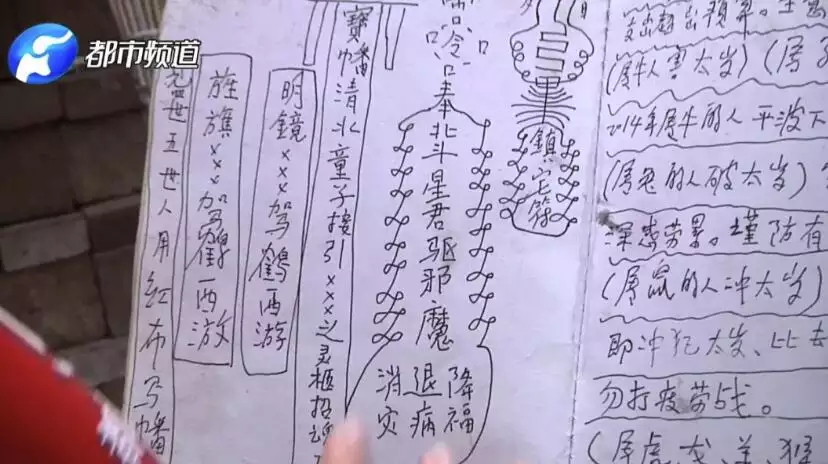 都市频道
鎮宅符
奉北斗星君驱邪魔
降福
退病
消灾
寶幡清北童子接引×××之灵柩招魂
明鏡×××驾鹤西游
旌旗×××驾鶴西游
五世人用红布写幡
(属牛人害太岁) (属
2014年属牛的人 平波下
(属兔的人破太岁)
深感劳累。谨防有
(属鼠的人冲太岁)
即冲犯太岁、比去
勿打疲劳战。
(属虎、龙、羊、猴